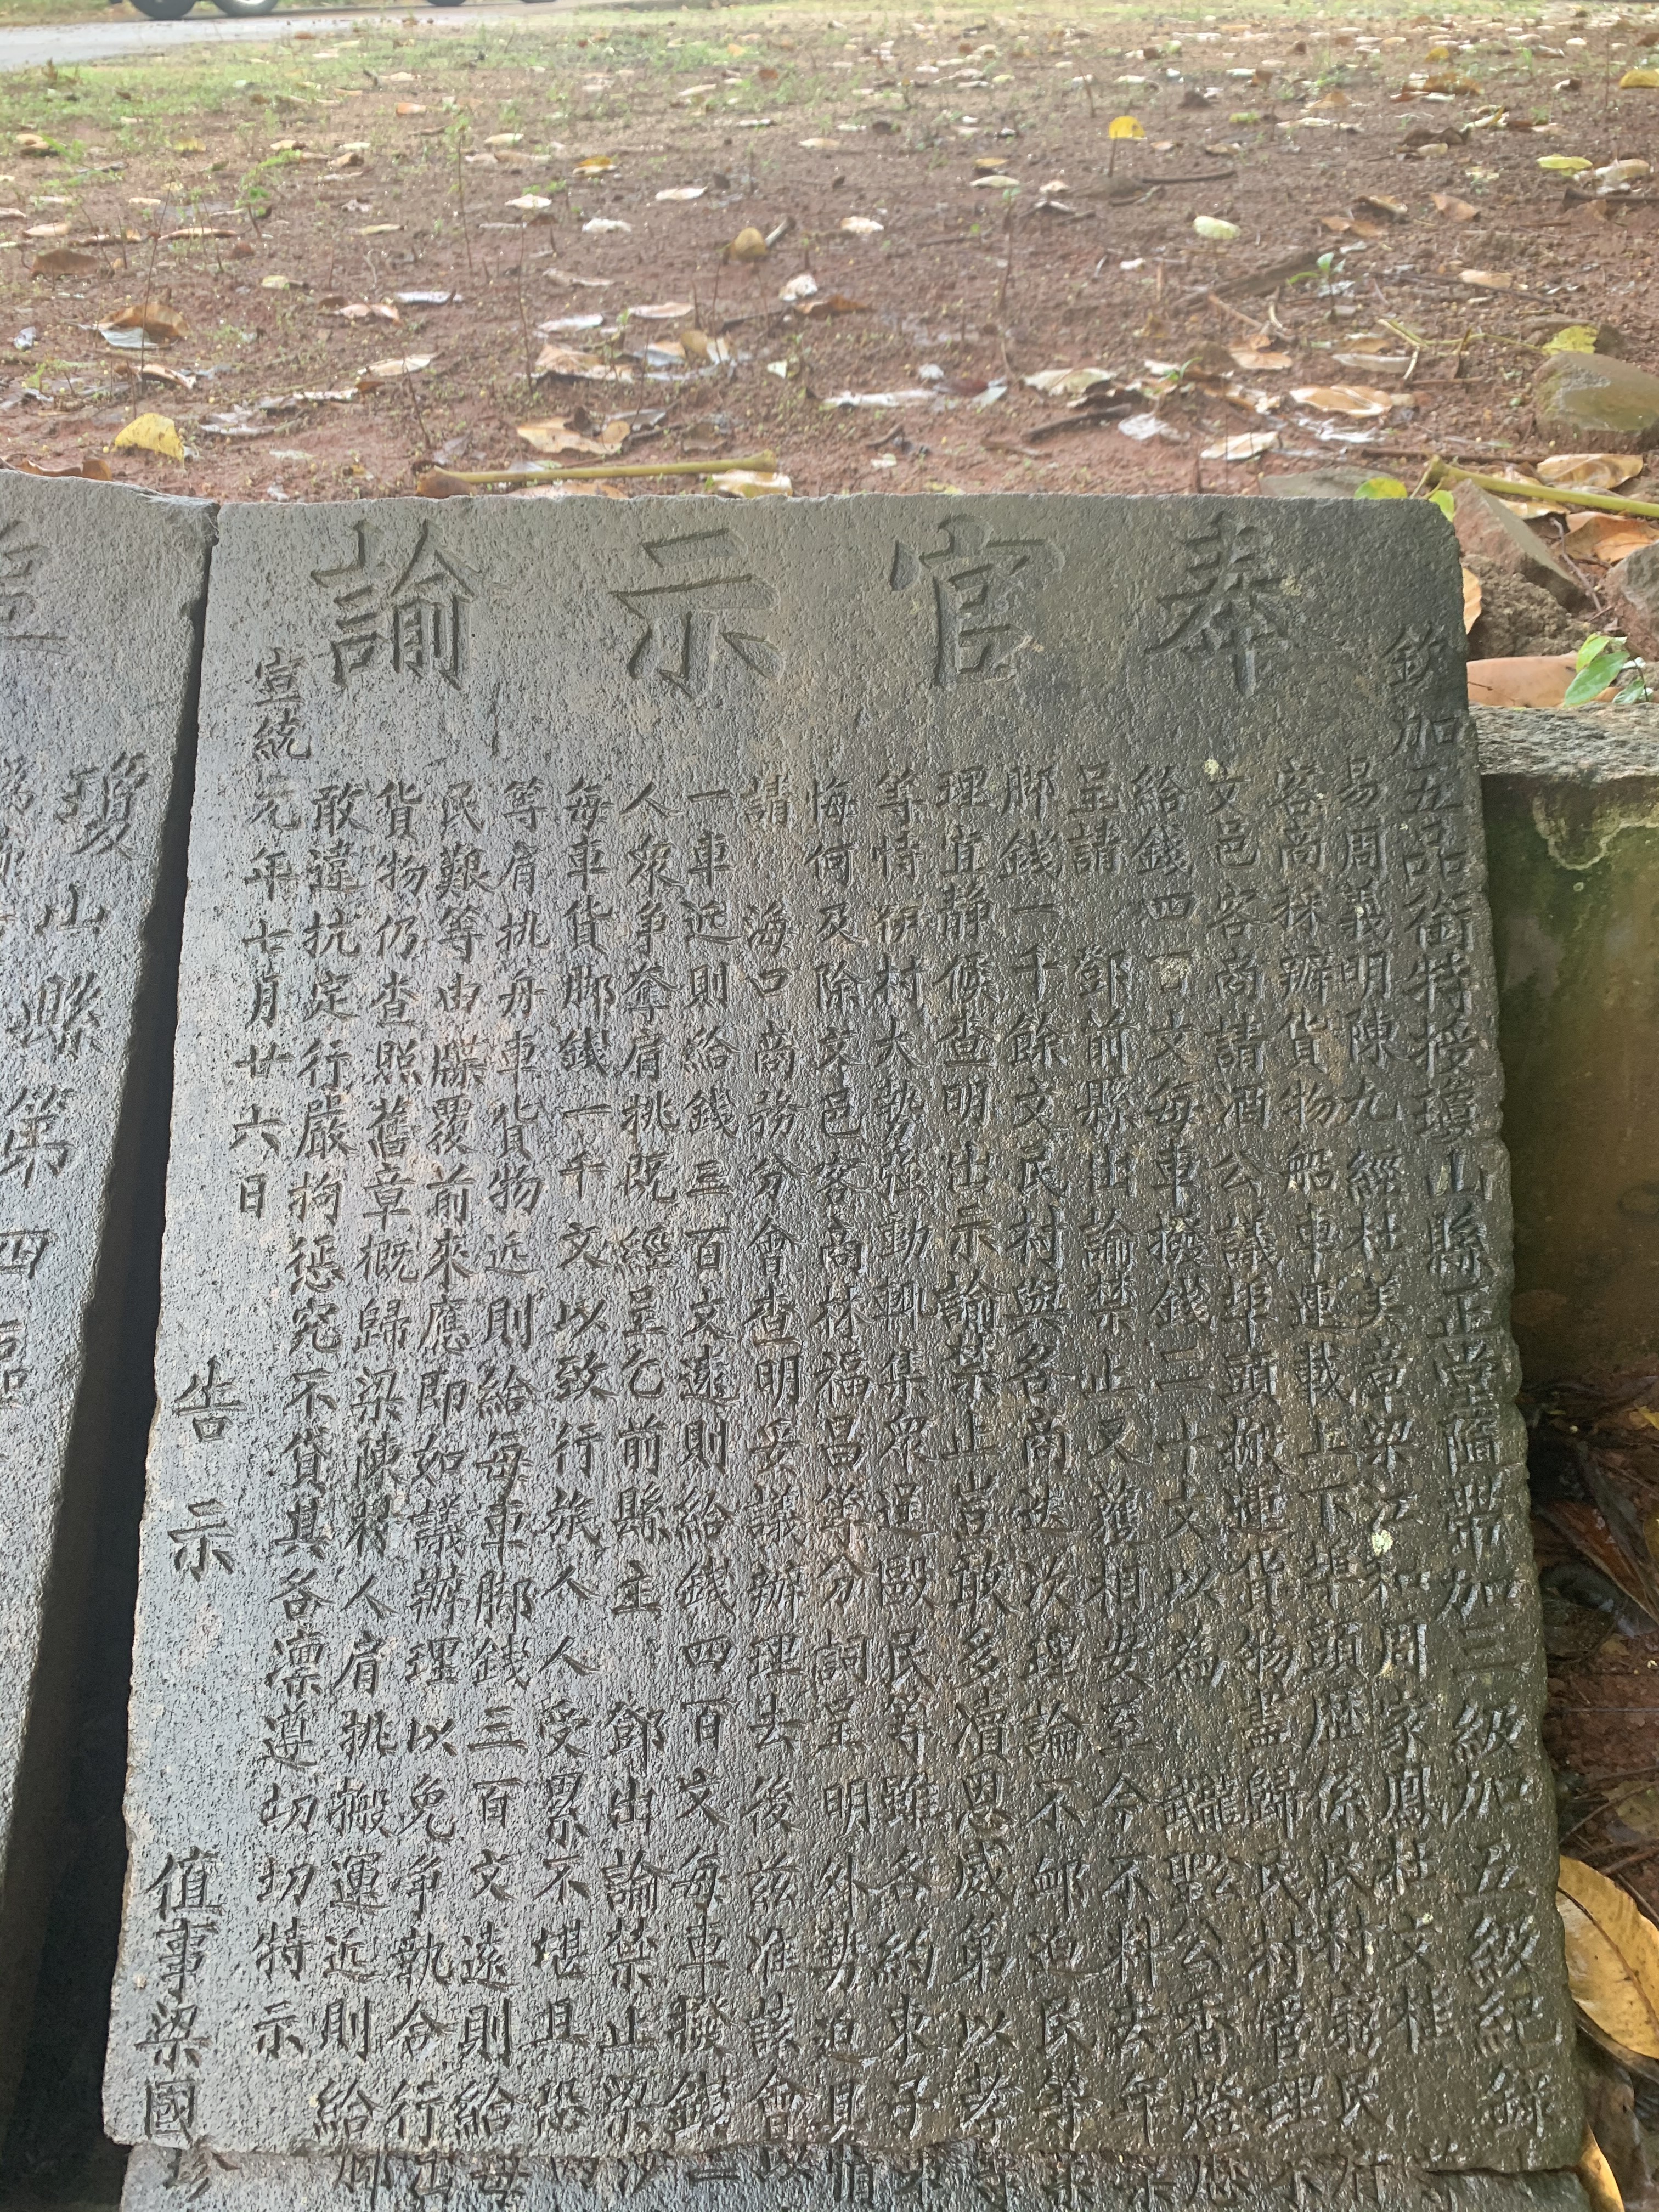 奉官示諭
欽加五品銜特授瓊山縣正堂隨帶加三級加五級紀錄
易周義明陳九經杜美章梁江和周家鳳杜文桂
客商採辦貨物船車運載上下埠頭歷係民村窮民
文邑客商請酒公議埠頭搬運貨物盡歸民村管理不
給錢四 文每車撥錢二十文以為 公香燈
呈請 鄧前縣出諭禁止又獲相安至今不料去年
脚錢一千餘文民村與各商迭次理論不 迫民等
理宜静候查明出示諭禁止豈敢多凟恩威第以孝
等恃 村大勢強動輒集眾逞毆民等雖各約束子
悔何及除文邑客商林福昌等分詞呈明外勢迫具
請 海口商務分會查明妥議辦理去後兹准該會以
一車近則給錢三百文遠則給錢四百文每車撥錢二
人眾爭奪肩挑既經呈乞前縣主 鄧出諭禁止梁沙
每車貨脚錢一千文以致行旅人人受累不堪且恐
等肩挑舟車貨物近則給每車脚錢三百文遠則給每
民艱等由牒覆前來應即如議辦理以免争執合行出
貨物仍查照舊章概歸梁陳 人肩挑搬運近則給脚
敢違抗定行嚴拘懲究不貸其各凛遵切切特示
宣統元年七月廿六日 告示
值事梁國珍
瓊山縣第四區